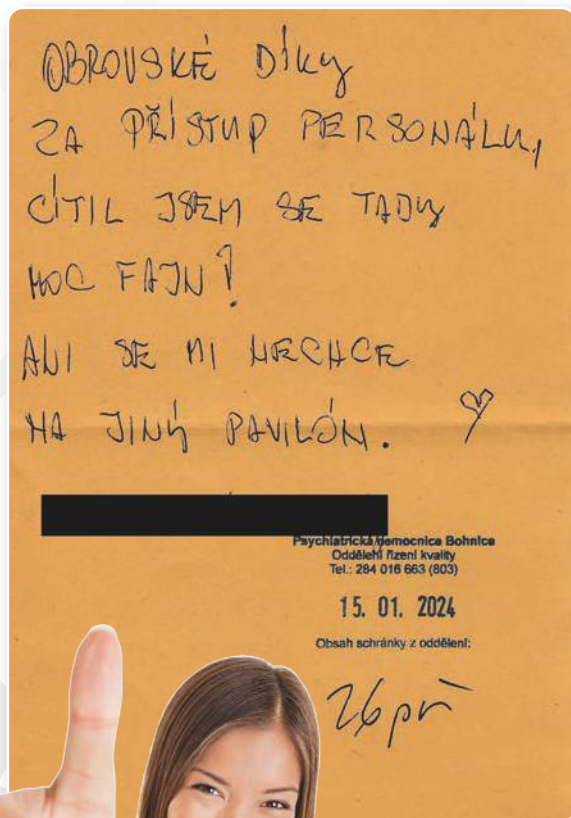 OBROVSKÉ Díky
ZA PŘÍSTUP PERSONÁLU,
CÍTIL JSEM SE TADY
MOC FAJN!
ANI SE MI NECHCE
NA JINÝ PAVILÓN.
Psychiatrická nemocnice Bohnice
Oddělení řízení kvality
Tel.: 284 016 663 (603)
15. 01. 2024
Obsah schránky z oddělení:
26 př